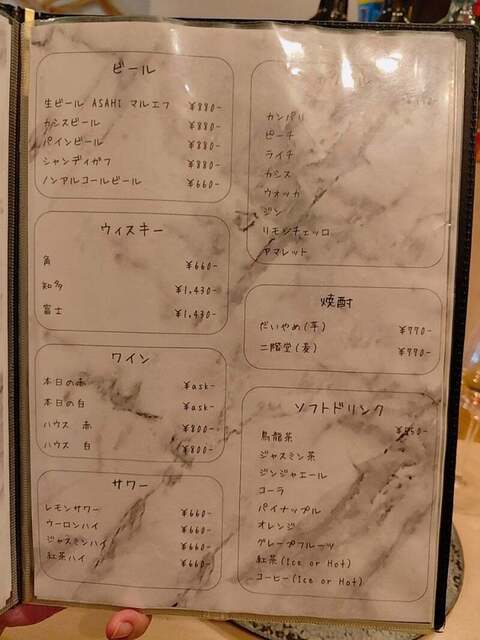 ビール
生ビール ASAHI マルエフ ¥880-
カシスビール ¥880-
パインビール ¥880-
シャンディガフ ¥880-
ノンアルコールビール ¥660-
ウィスキー
角 ¥660-
知多 ¥1,430-
富士 ¥1,430-
ワイン
本日の赤 ¥ask-
本日の白 ¥ask-
ハウス 赤 ¥800-
ハウス 白 ¥800-
サワー
レモンサワー ¥660-
ウーロンハイ ¥660-
ジャスミンハイ ¥660-
紅茶ハイ ¥660-
カンパリ
ピーチ
ライチ
カシス
ウォッカ
ジン
リモンチェッロ
アマレット
焼酎
だいやめ(芋) ¥770-
二階堂(麦) ¥770-
ソフトドリンク
烏龍茶
ジャスミン茶
ジンジャエール
コーラ
パイナップル
オレンジ
グレープフルーツ
紅茶(Ice or Hot)
コーヒー(Ice or Hot)